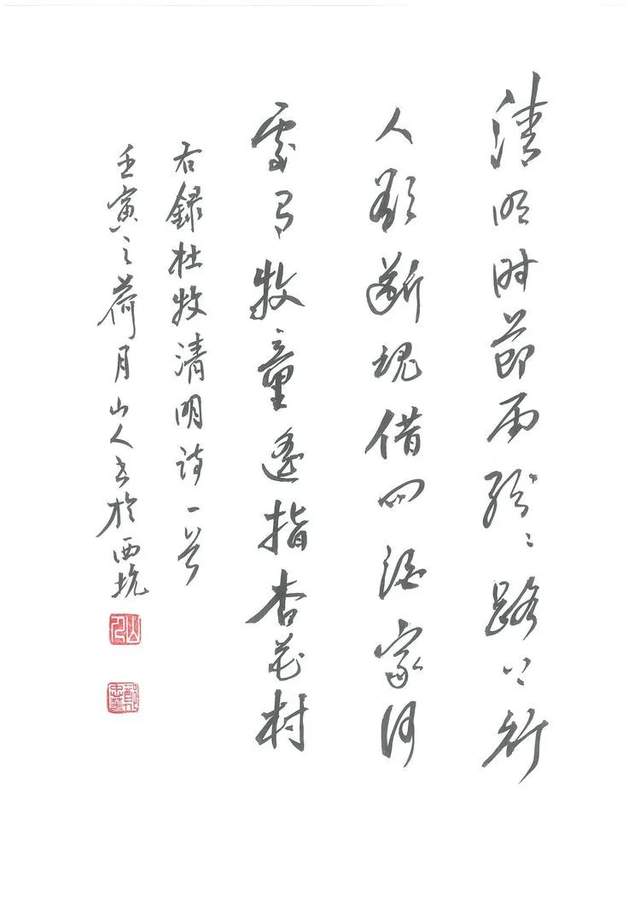 清明时節雨紛〻路上行
人欲断魂借问酒家何
處有牧童遥指杏花村
右録杜牧清明诗一首
壬寅之荷月山人书於西坑
山人